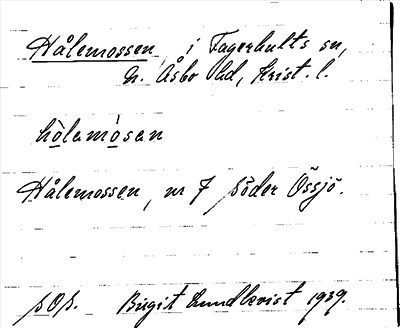 Hålemossen, i Fagerhults sn,
N. Åsbo hd, Krist. l.
hòlamòsan
Hålemossen, nr 7 söder Össjö.
sOs. Birgit Lundkvist 1939.